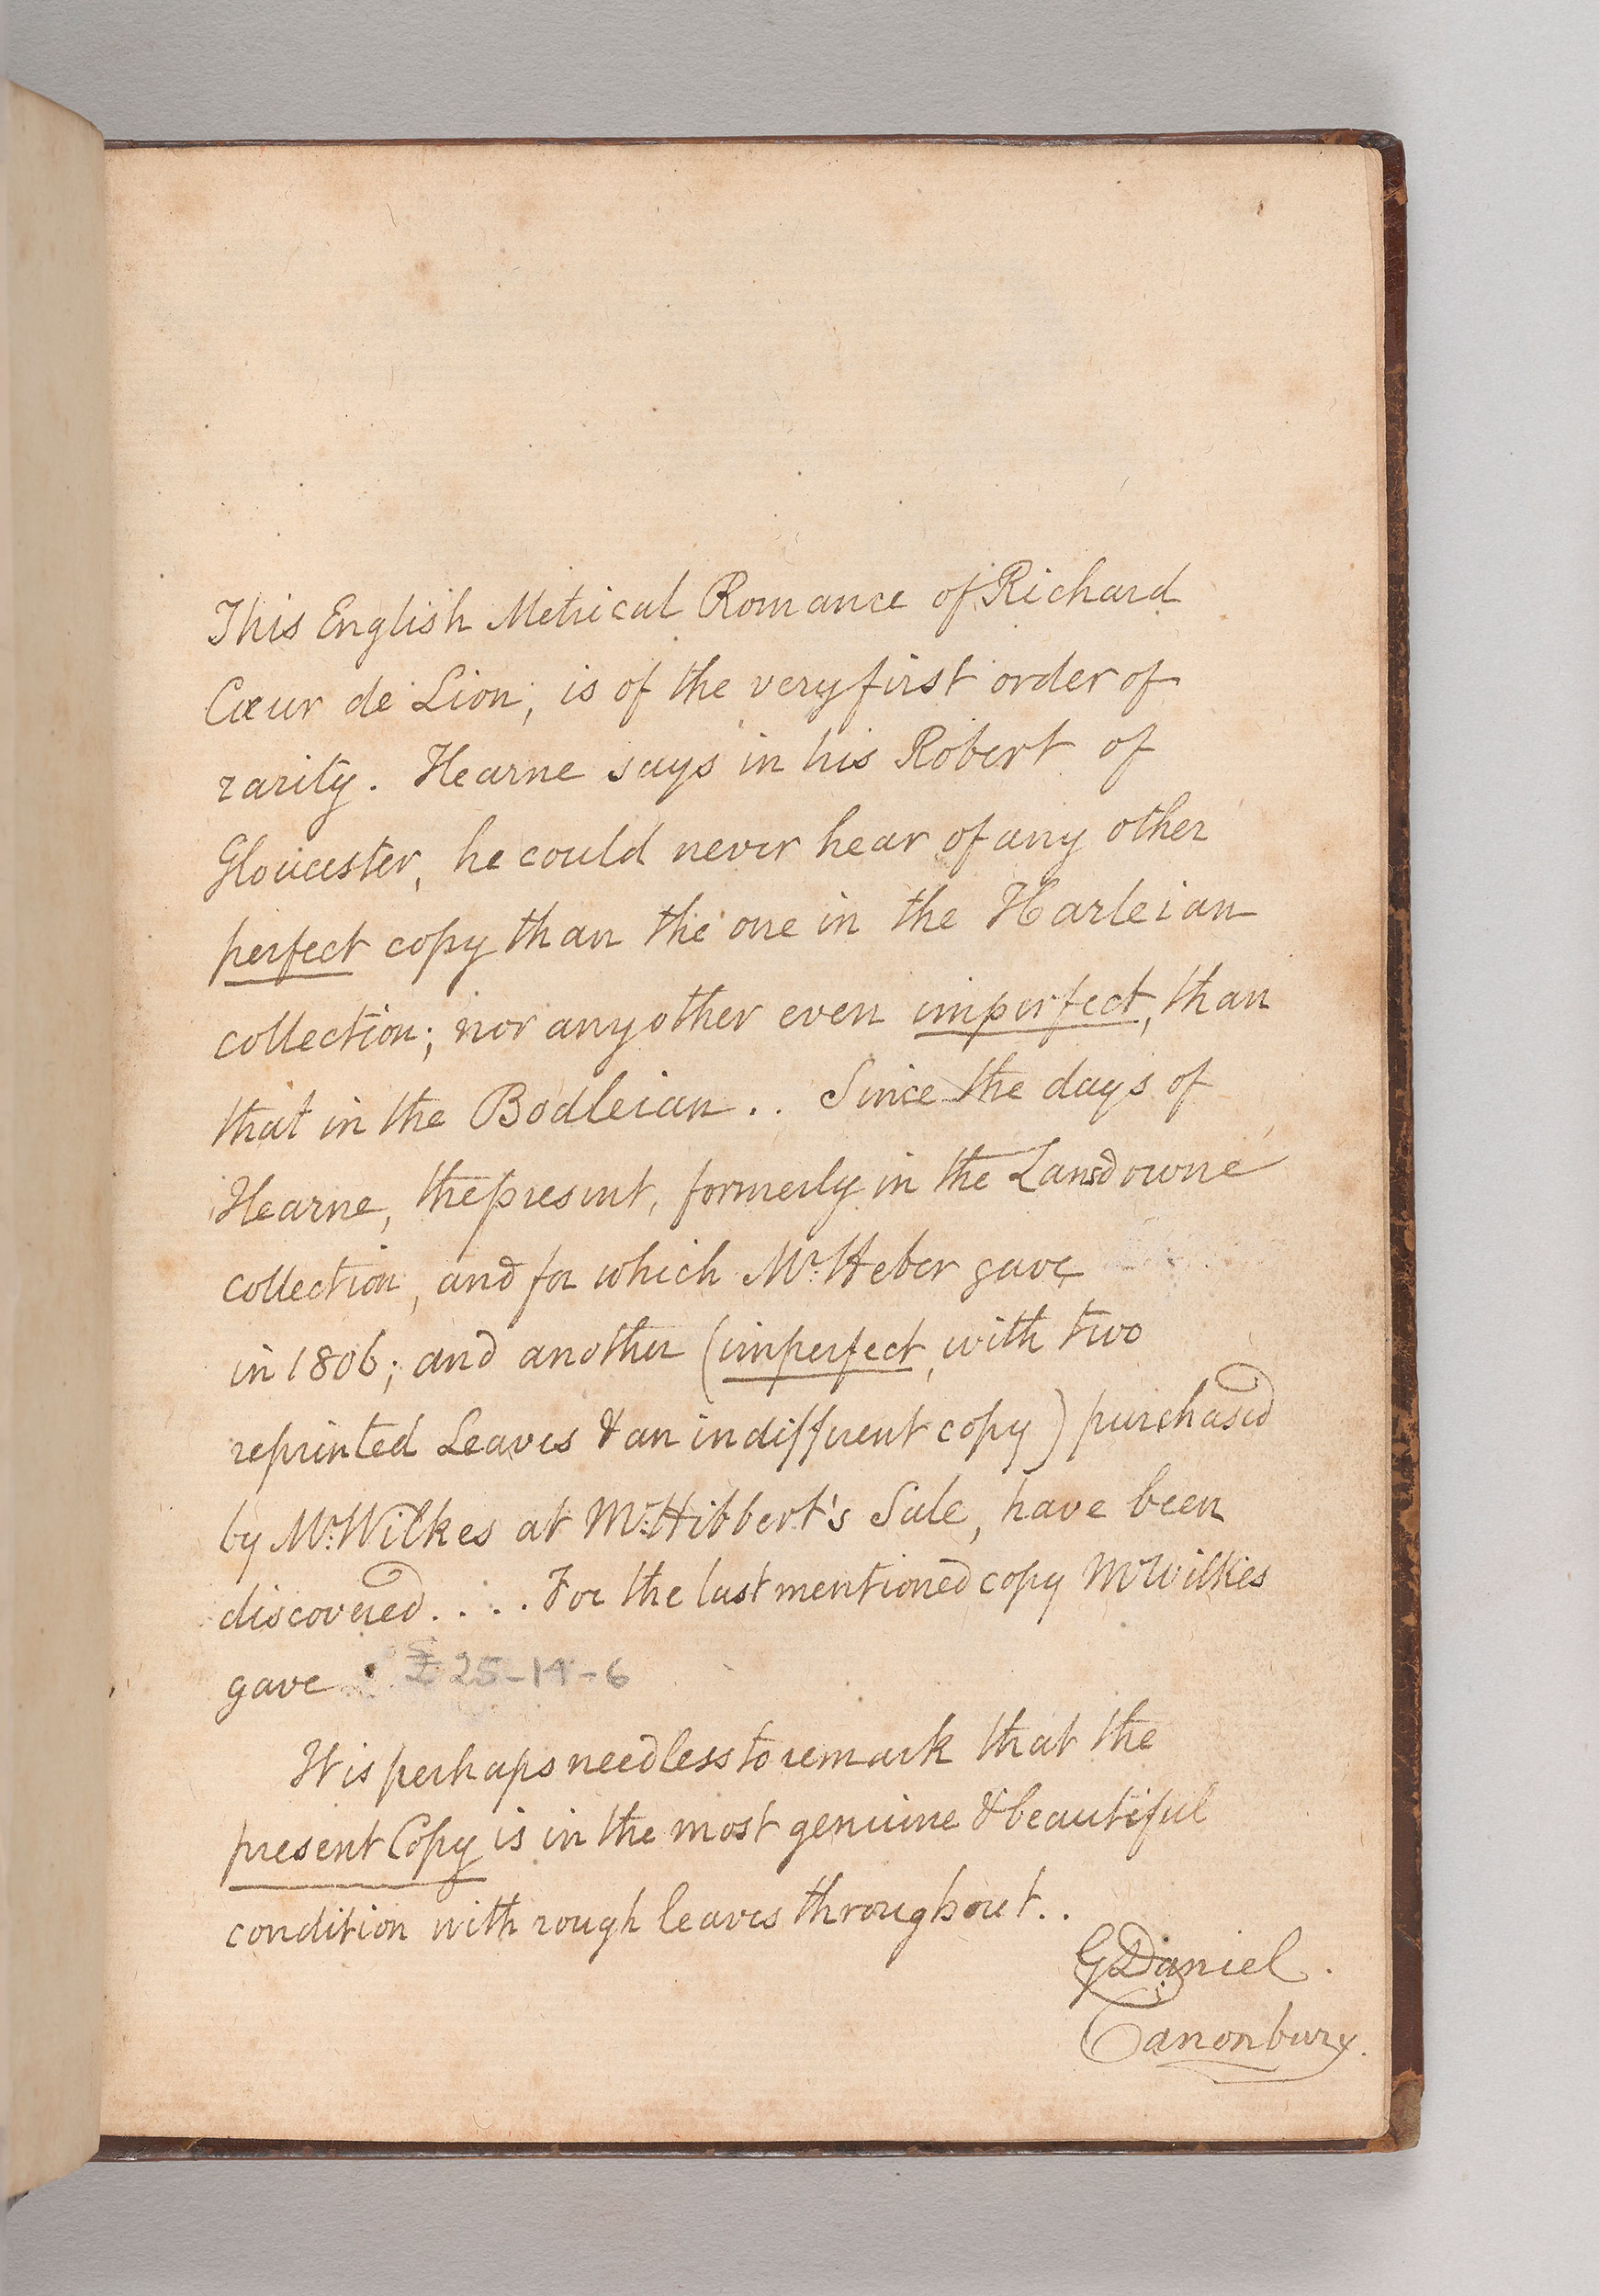 This English Metrical Romance of Richard
Cœur de Lion, is of the very first order of
rarity. Hearne says in his Robert of
Gloucester, he could never hear of any other
perfect copy than the one in the Harleian
collection; nor any other even imperfect, than
that in the Bodleian.. Since the days of
Hearne, the present, formerly in the Lansdowne
collection, and for which Mr. Heber gave
in 1806; and another (imperfect, with two
reprinted Leaves & an indifferent copy) purchased
by Mr. Wilkes at Mr. Hibbert's Sale, have been
discovered.... For the last mentioned copy Mr Wilkes
gave £25-14-6
It is perhaps needless to remark that the
present Copy is in the most genuine & beautiful
condition with rough leaves throughout..
G Daniel.
Canonbury.